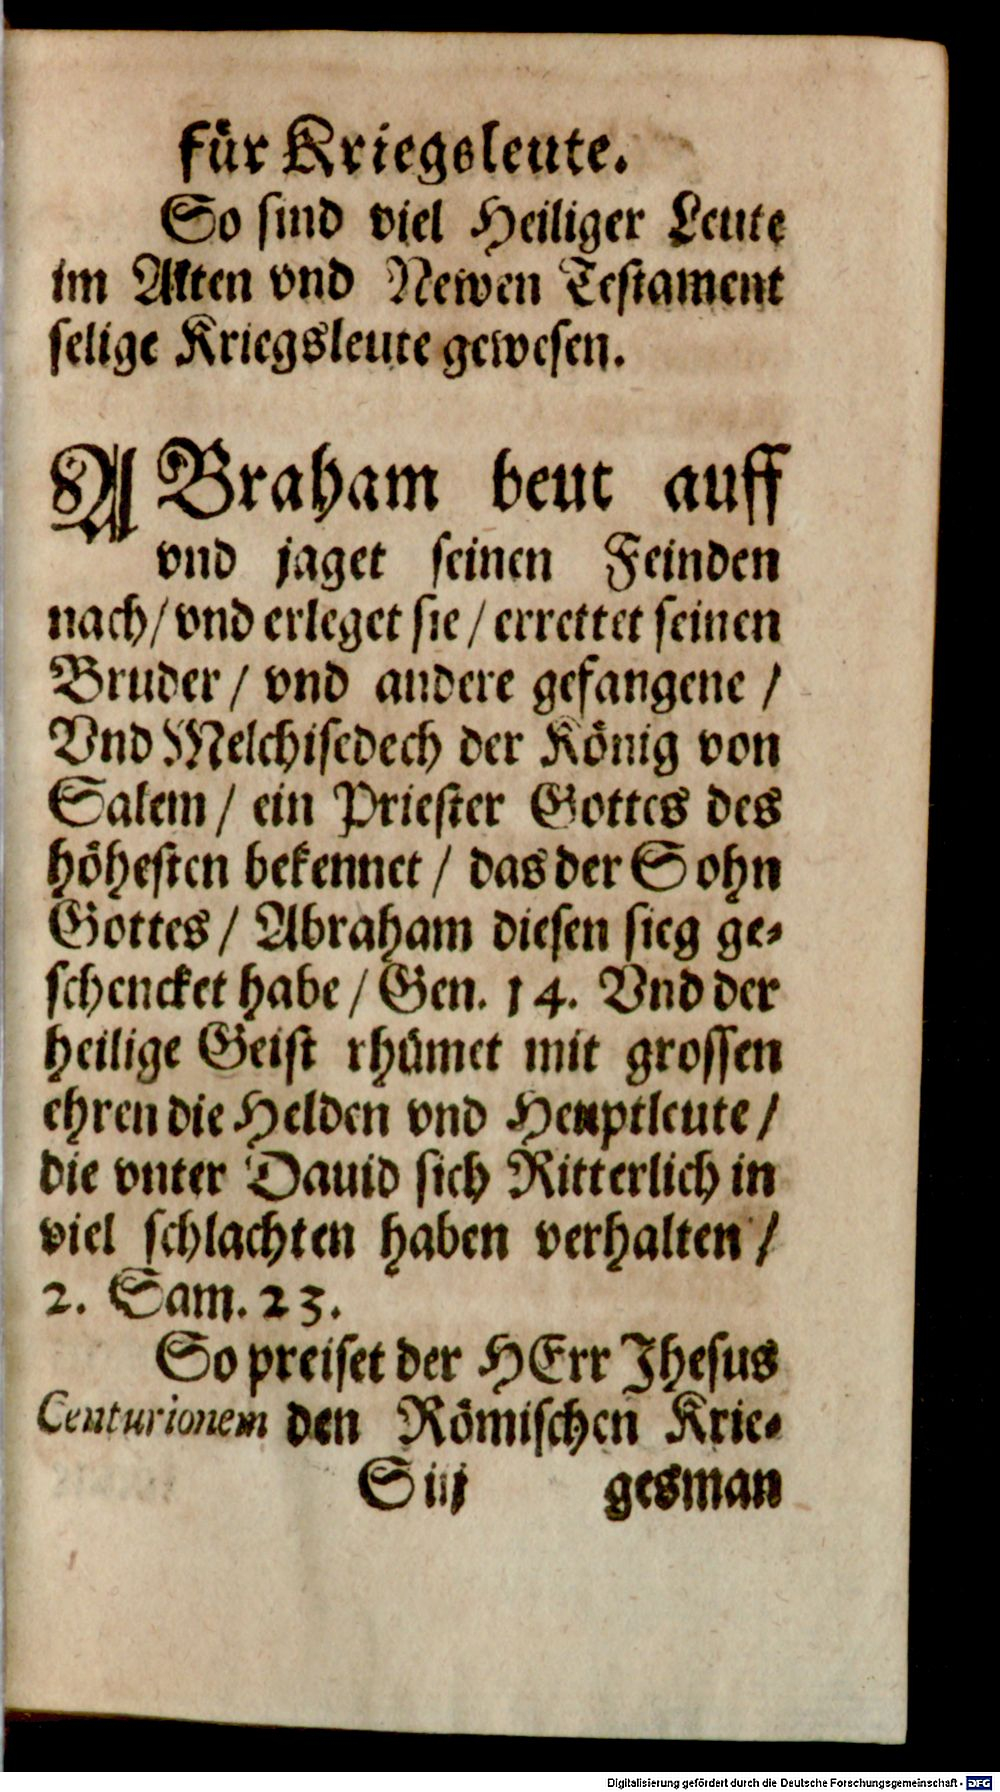 für Kriegsleute.
So sind viel Heiliger Leute
im Alten vnd Newen Testament
selige Kriegsleute gewesen.
ABraham beut auff
vnd jaget seinen Feinden
nach/ vnd erleget sie / errettet seinen
Bruder / vnd andere gefangene /
Vnd Melchisedech der König von
Salem / ein Priester Gottes des
höhesten bekennet / das der Sohn
Gottes / Abraham diesen sieg ge-
schencket habe / Gen. 14. Vnd der
heilige Geist rhümet mit grossen
ehren die Helden vnd Heuptleute /
die vnter Dauid sich Ritterlich in
viel schlachten haben verhalten /
2. Sam. 23.
So preiset der HErr Jhesus
Centurionem den Römischen Krie-
S iij gesman
Digitalisierung gefördert durch die Deutsche Forschungsgemeinschaft - DFG